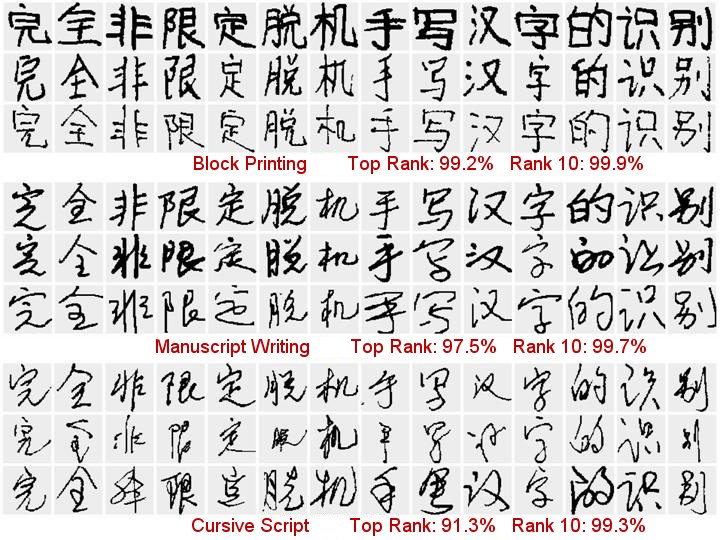 完全非限定脱机手写汉字的识别
完全非限定脱机手写汉字的识别
完全非限定脱机手写汉字的识别
Block Printing Top Rank: 99.2% Rank 10: 99.9%
完全非限定脱机手写汉字的识别
完全非限定脱机手写汉字的识别
完全非限定脱机手写汉字的识别
Manuscript Writing Top Rank: 97.5% Rank 10: 99.7%
完全非限定脱机手写汉字的识别
完全非限定脱机手写汉字的识别
完全非限定脱机手写汉字的识别
Cursive Script Top Rank: 91.3% Rank 10: 99.3%